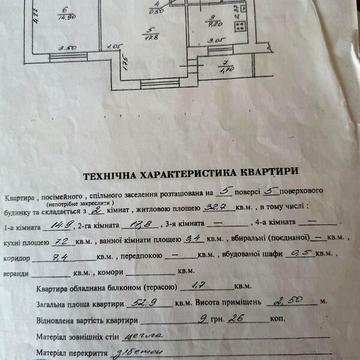 6
14.90
4
0.50
3
7.20
5
17.8
3.50
1.05
3.05
7
1.70
ТЕХНІЧНА ХАРАКТЕРИСТИКА КВАРТИРИ
Квартира , посімейного , спільного заселення розташована на 5 поверсі 5 поверхового
(непотрібне закреслити)
будинку та складається з 2 кімнат , житловою площею 32.7 кв.м , в тому числі :
1-а кімната 14.9, 2-га кімната 17.8, 3-я кімната — , 4-а кімната — кв.м ,
кухні площею 7.2 кв.м , ванної кімнати площею 3.4 кв.м , вбиральні (поєднаної) — кв.м ,
коридор 7.4 кв.м , передпокою — кв.м , вбудованої шафи 0,5 кв.м ,
веранди кв.м , комори кв.м.
Квартира обладнана балконом (терасою) 1.7 кв.м.
Загальна площа квартири 52,9 кв.м. Висота приміщень 2,50 м.
Відновлена вартість квартири 9 грн. 26 коп.
Матеріал зовнішніх стін цегла
Матеріал перекриття з/бетон